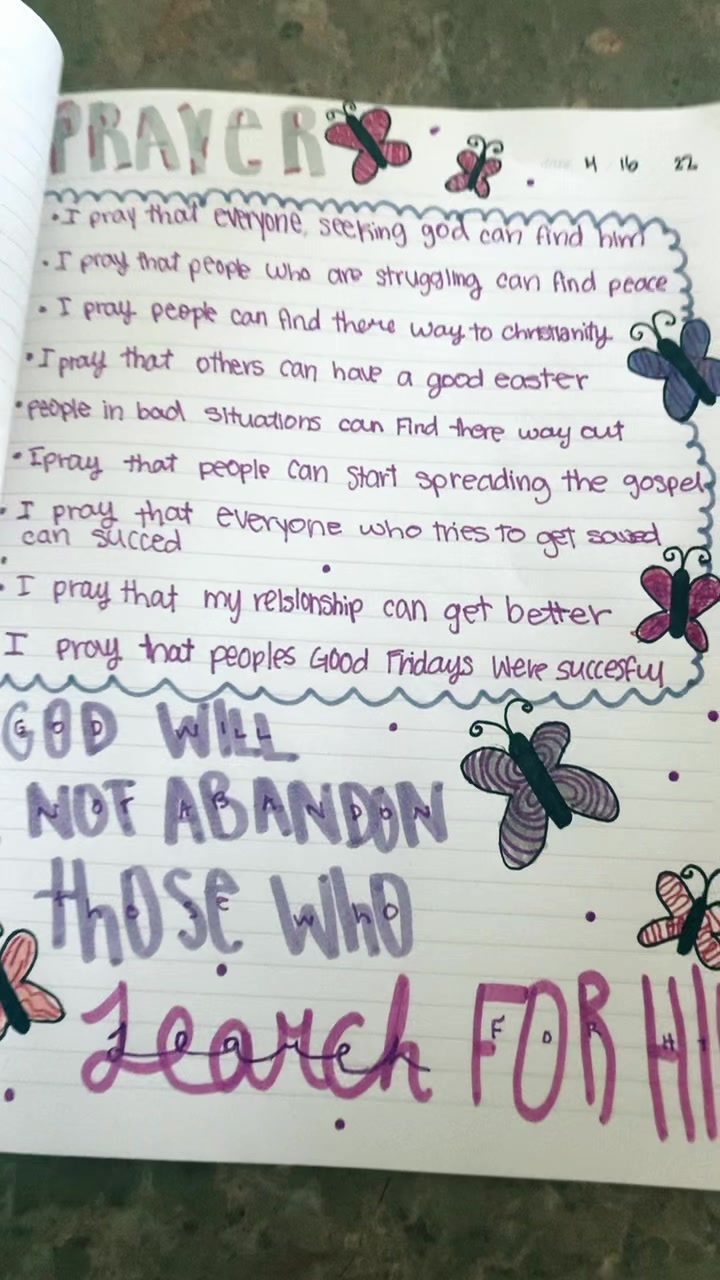 PRAYER
date 4 16 22
• I pray that everyone seeking god can find him
• I pray that people who are struggling can find peace
• I pray people can find there way to christianity
• I pray that others can have a good easter
• people in bad situations can find there way out
• I pray that people can start spreading the gospel
• I pray that everyone who tries to get saved
can succed
• I pray that my relsionship can get better
I pray that peoples Good Fridays were succesful
GOD WILL
NOT ABANDON
those who
search FOR HI